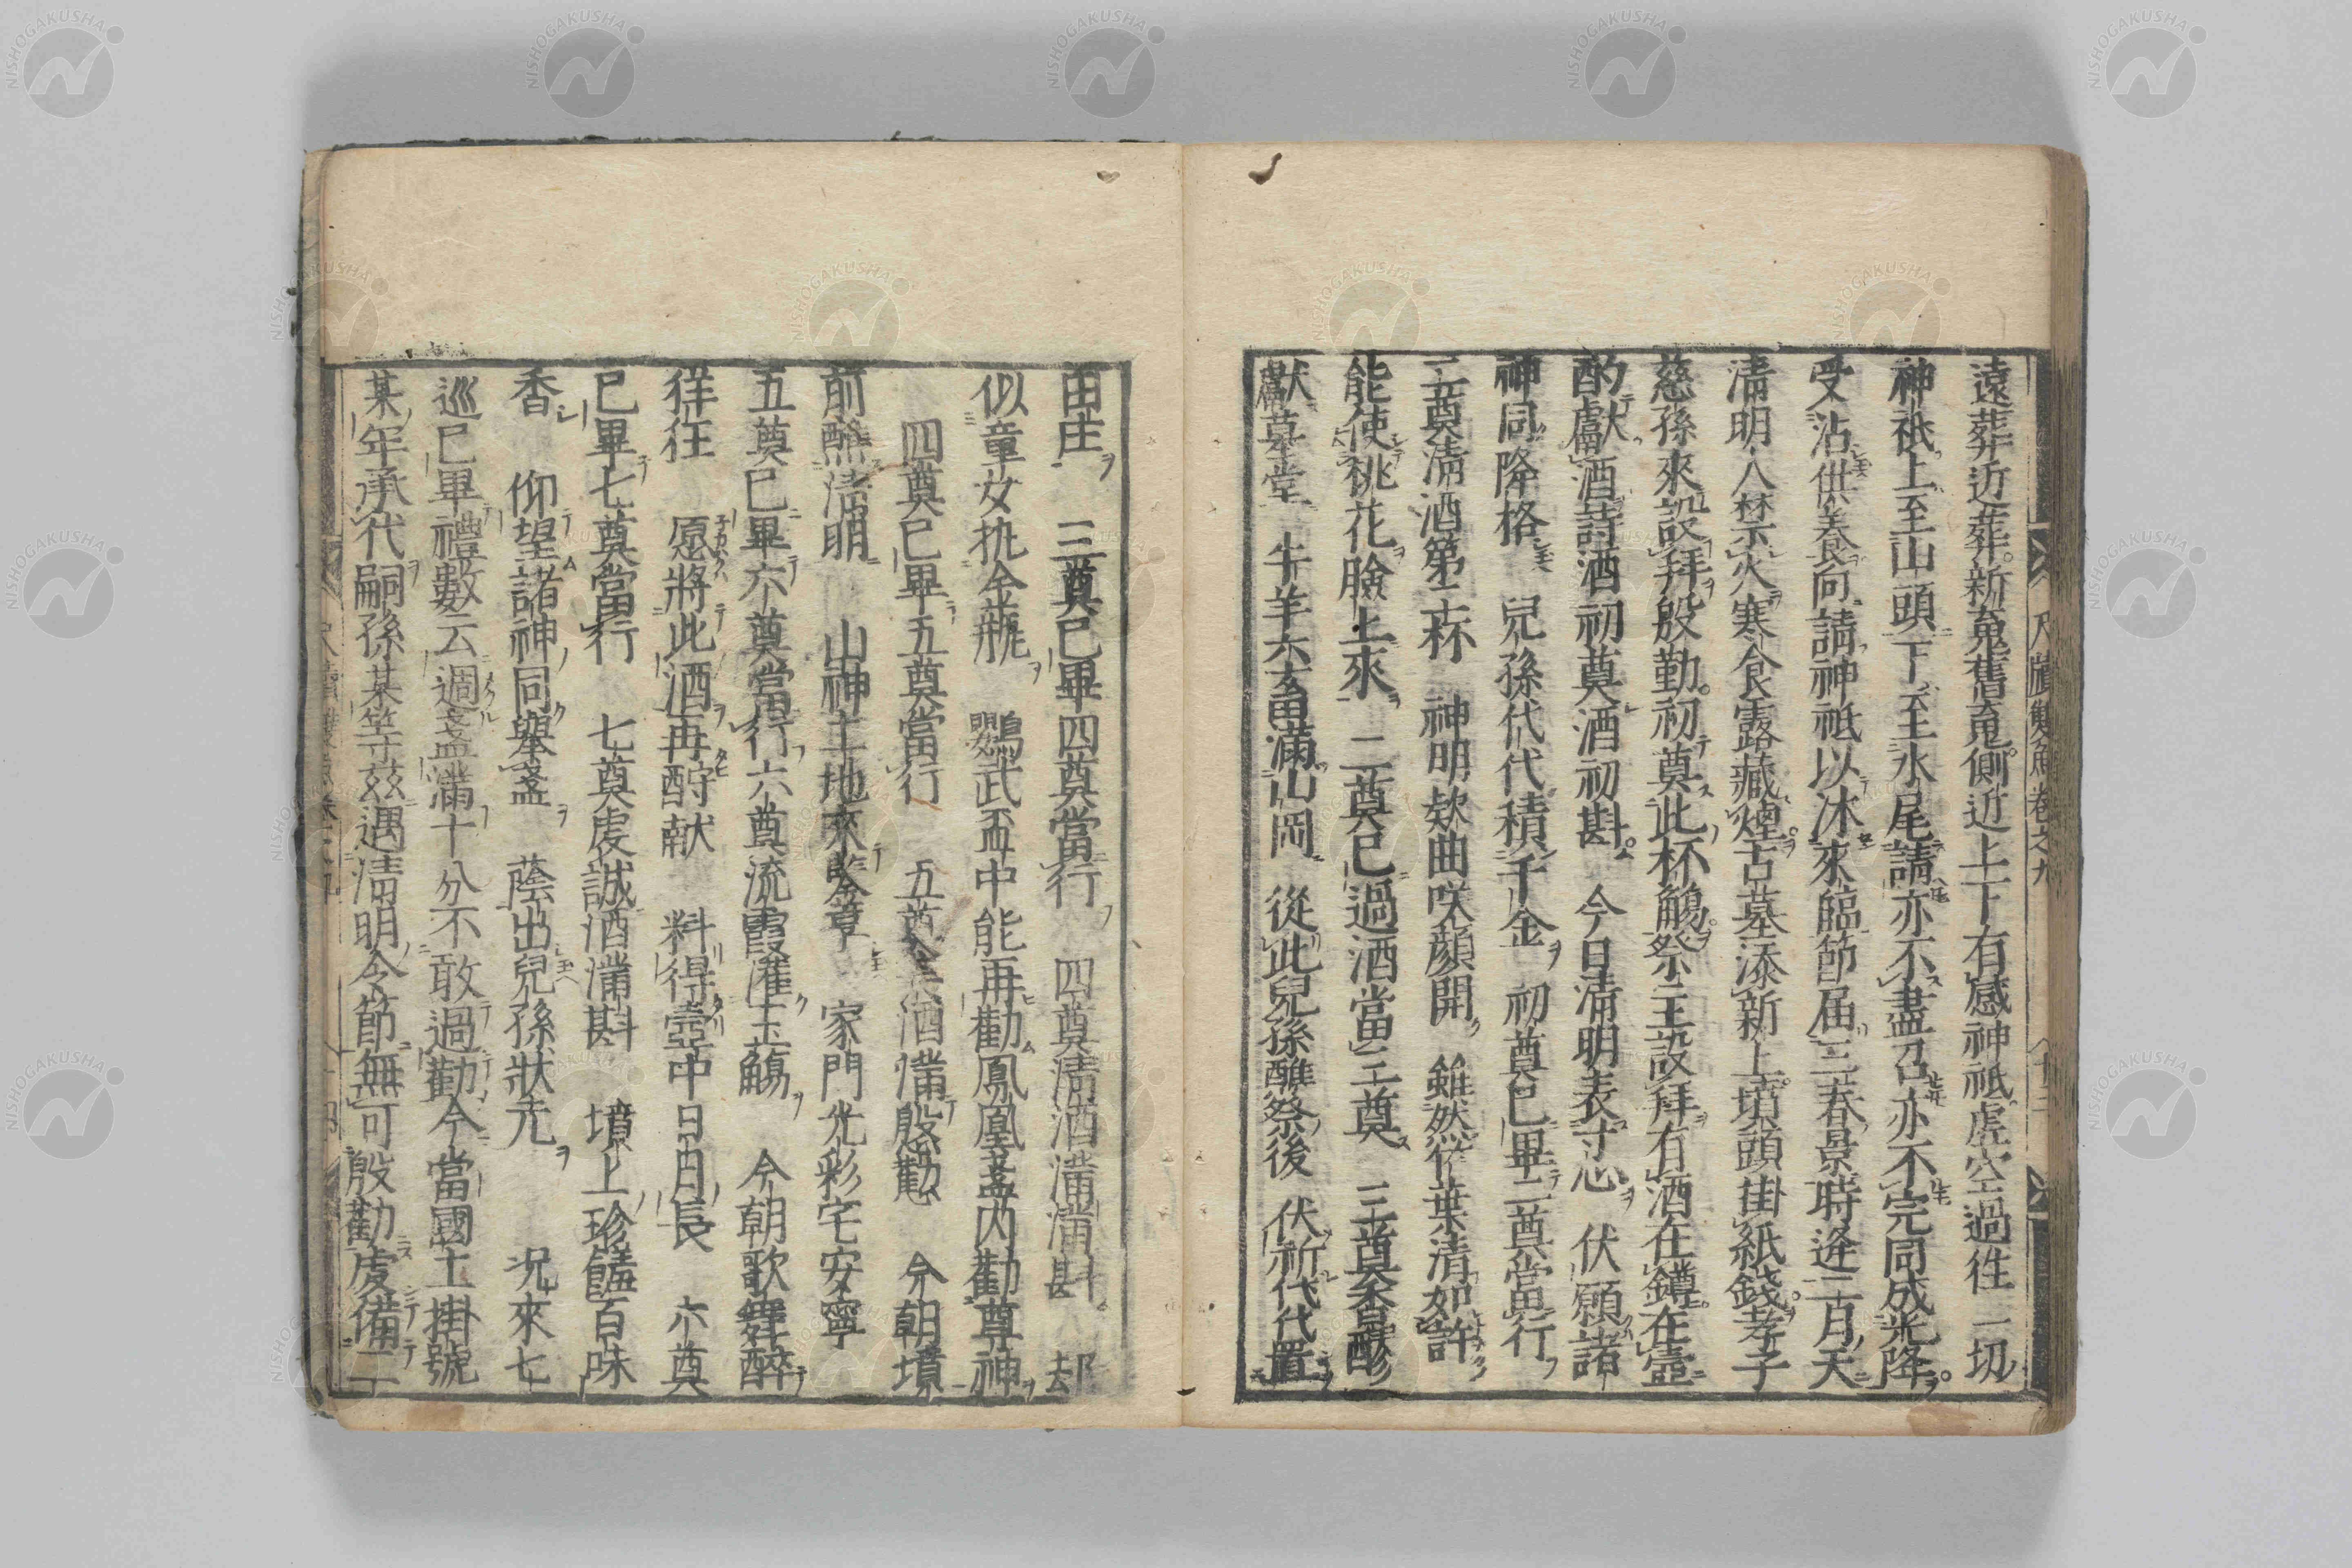 尺牘雙魚卷之九 十三
遠葬近葬新䰟舊䰟側近上下有感神祇虛空過徃一切
神祇上至山頭下至水尾請亦不盡召亦不完同成光降
受沾供養向請神祇以沐來臨節届三春景時逢二月天
淸明八禁火寒食露藏煙古墓添新土墳頭掛紙錢孝子
慈孫來設拜殷勤初奠此杯觴祭主設拜有酒在罇在壺
酌獻酒詩酒初奠酒初斟 今日淸明表寸心 伏願諸
神同降格 兒孫代代積千金 初奠已畢二奠當行
二奠淸酒第二杯 神明欵曲咲顔開 雖然竹葉淸如許
能使桃花臉上來 二奠已過酒當三奠 三奠
獻墓堂 牛羊六畜滿山岡 從此兒孫醮祭後 伏祈代代置
田庄 三奠已畢四奠當行 四奠淸酒滿滿斟 却
似童女执金瓶 鸚武盃中能再勸鳳凰盞内勸尊神
四奠已畢五奠當行 五奠 酒滿慇懃 今朝墳
前醮淸明 山神土地來 家門光彩宅安寧
五奠已畢六奠當行六奠流霞灌玉觴 今朝歌舞醉
徉徃 愿將此酒再酹献 料得壺中日月長 六奠
已畢七奠當行 七奠虔誠酒滿斟 墳上珍饈百味
香 仰望諸神同舉盞 蔭出兒孫狀元 況來七
巡已畢禮數云週盞滿十分不敢過勸今當國土掛號
某年承代嗣孫某等玆遇淸明令節無可殷勤虔備二